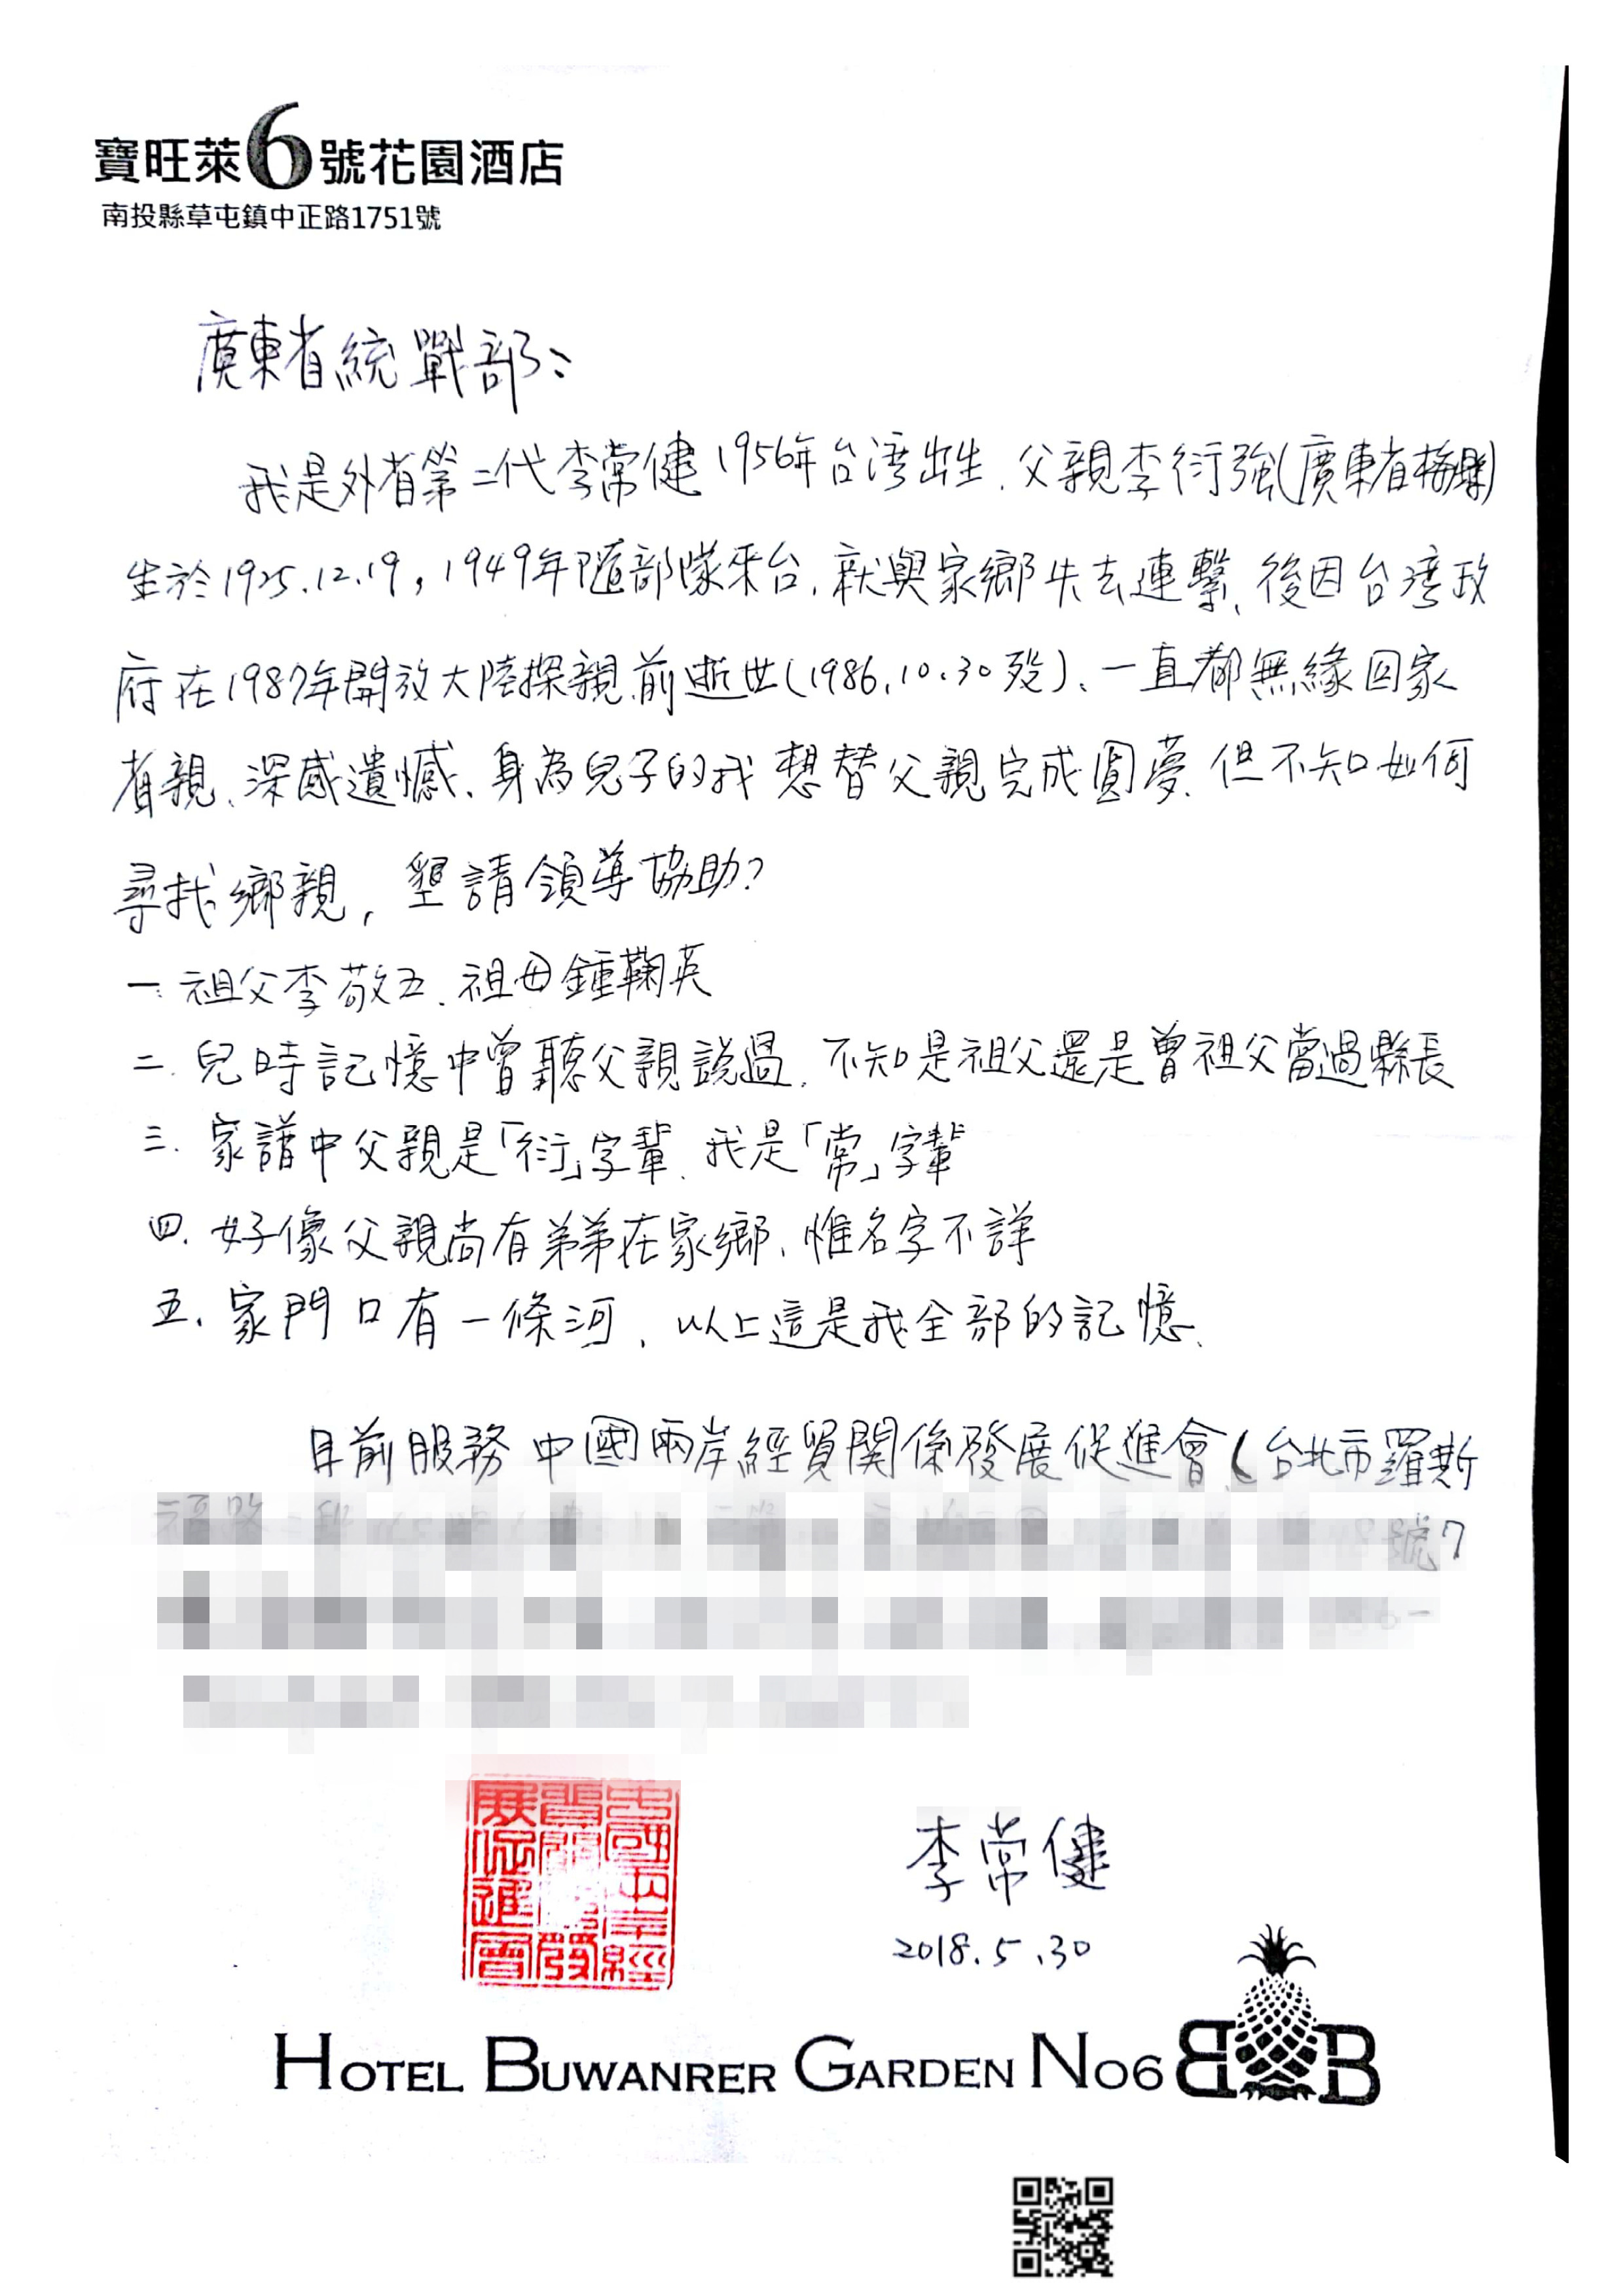 寶旺萊6號花園酒店
南投縣草屯鎮中正路1751號
廣東省統戰部：
我是外省第二代李常健1956年台灣出生．父親李衍強(廣東省梅縣)
生於1925.12.19，1949年隨部隊來台．就與家鄉失去連繫、後因台灣政
府在1987年開放大陸探親前逝世(1986.10.30歿)、一直都無緣回家
省親、深感遺憾、身為兒子的我想替父親完成圓夢、但不知如何
尋找鄉親，墾請領導協助？
一、祖父李敬五、祖母鍾鞠英
二、兒時記憶中曾聽父親說過、不知是祖父還是曾祖父當過縣長
三．家譜中父親是「衍」字輩、我是「常」字輩
四．好像父親尚有弟弟在家鄉、惟名字不詳
五．家門口有一條河、以上這是我全部的記憶．
目前服務中國兩岸經貿関係發展促進會(台北市羅斯
號7
李常健
2018.5.30
HOTEL BUWANRER GARDEN NO6 BB